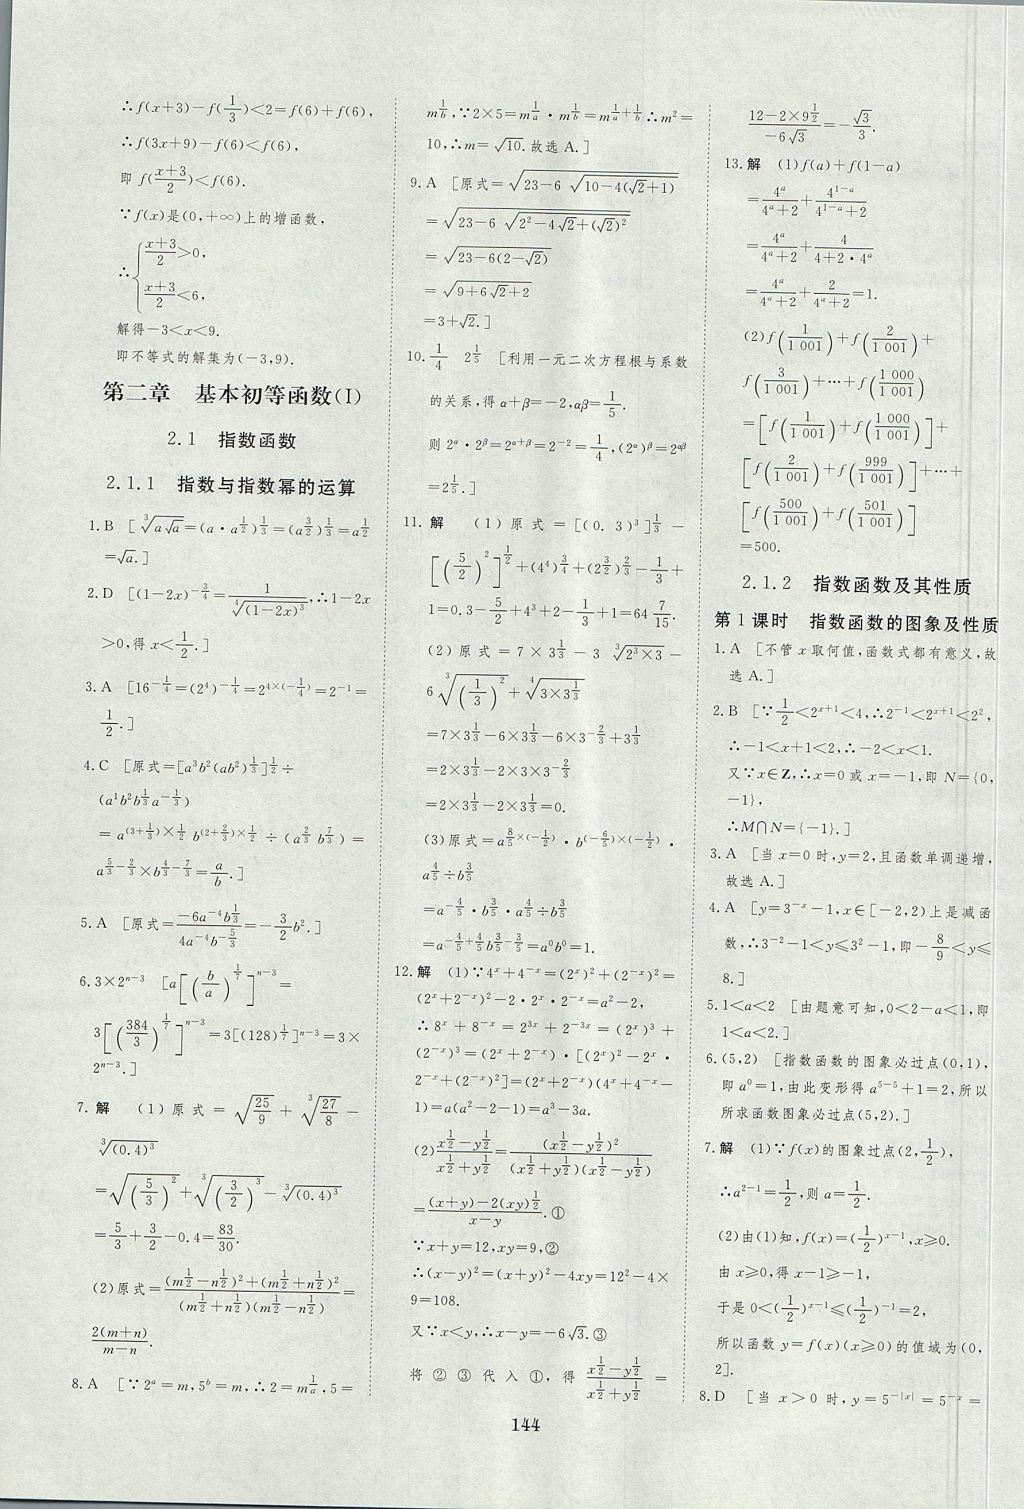 ∴f(x+3)-f(1/3)<2=f(6)+f(6),
∴f(3x+9)-f(6)<f(6),
即 f((x+3)/2)<f(6).
∵f(x)是(0,+∞)上的增函数,
∴{(x+3)/2>0,
(x+3)/2<6,
解得-3<x<9.
即不等式的解集为(-3,9).
第二章 基本初等函数(Ⅰ)
2.1 指数函数
2.1.1 指数与指数幂的运算
1.B [∛(a√a)=(a·a^(1/2))^(1/3)=(a^(3/2))^(1/3)=a^(1/2)
=√a.]
2.D [(1-2x)^(-3/4)=1/⁴√((1-2x)³),∴1-2x
>0,得 x<1/2.]
3.A [16^(-1/4)=(2⁴)^(-1/4)=2^(4×(-1/4))=2⁻¹=
1/2.]
4.C [原式=[a³b²(ab²)^(1/3)]^(1/2)÷
(a¹b²b^(1/3)a^(-1/3))
=a^((3+1/3)×1/2) b^((2+2/3)×1/2)÷(a^(2/3) b^(7/3))=
a^(5/3-2/3)×b^(4/3-7/3)=a/b.]
5.A [原式=(-6a⁻⁴b^(1/3))/(4a⁻⁴b^(-5/3))=-(3/2)b².]
6.3×2ⁿ⁻³ [a[(b/a)^(1/7)]ⁿ⁻³=
3[(384/3)^(1/7)]ⁿ⁻³=3[(128)^(1/7)]ⁿ⁻³=3×
2ⁿ⁻³.]
7.解 (1)原式=√(25/9)+∛(27/8)-
∛((0.4)³)
=√((5/3)²)+∛((3/2)³)-∛((0.4)³)
=5/3+3/2-0.4=83/30.
(2)原式=((m^(1/2)-n^(1/2))²+(m^(1/2)+n^(1/2))²)/((m^(1/2)+n^(1/2))(m^(1/2)-n^(1/2)))=
2(m+n)/(m-n).
8.A [∵2ᵃ=m,5ᵇ=m,∴2=m^(1/a),5=
m^(1/b),∵2×5=m^(1/a)·m^(1/b)=m^(1/a+1/b)∴m²=
10,∴m=√10.故选 A.]
9.A [原式=√(23-6√(10-4(√2+1)))
=√(23-6√(2²-4√2+(√2)²))
=√(23-6(2-√2))
=√(9+6√2+2)
=3+√2.]
10.1/4 2^(1/5) [利用一元二次方程根与系数
的关系,得 α+β=-2,αβ=1/5.
则 2^α·2^β=2^(α+β)=2⁻²=1/4,(2^α)^β=2^(αβ)
=2^(1/5).]
11.解 (1)原式=[(0.3)³]^(1/3)-
[(5/2)²]^(1/2)+(4⁴)^(3/4)+(2^(3/2))^(2/3)-1/3+
1=0.3-5/2+4³+2-1/3+1=64 7/15.
(2)原式=7×3^(1/3)-3∛(2³×3)-
6∛((1/3)²)+⁴√(3×3^(1/3))
=7×3^(1/3)-6×3^(1/3)-6×3^(-2/3)+3^(1/3)
=2×3^(1/3)-2×3×3^(-2/3)
=2×3^(1/3)-2×3^(1/3)=0.
(3)原式=a^(8/5×(-1/2))·b^((-6/5)×(-1/2))·
a^(4/5)÷b^(3/5)
=a^(-4/5)·b^(3/5)·a^(4/5)÷b^(3/5)
=a^(-4/5+4/5)b^(3/5-3/5)=a⁰b⁰=1.
12.解 (1)∵4ˣ+4⁻ˣ=(2ˣ)²+(2⁻ˣ)²=
(2ˣ+2⁻ˣ)²-2·2ˣ·2⁻ˣ=a²-2,
∴8ˣ+8⁻ˣ=2³ˣ+2⁻³ˣ=(2ˣ)³+
(2⁻ˣ)³=(2ˣ+2⁻ˣ)·[(2ˣ)²-2ˣ·
2⁻ˣ+(2⁻ˣ)²]=(2ˣ+2⁻ˣ)(4ˣ+4⁻ˣ-
1)=a(a²-2-1)=a³-3a.
(2)(x^(1/2)-y^(1/2))/(x^(1/2)+y^(1/2))=(x^(1/2)-y^(1/2))²/((x^(1/2)+y^(1/2))(x^(1/2)-y^(1/2)))
=((x+y)-2(xy)^(1/2))/(x-y).①
∵x+y=12,xy=9,②
∴(x-y)²=(x+y)²-4xy=12²-4×
9=108.
又∵x<y,∴x-y=-6√3.③
将②③代入①,得(x^(1/2)-y^(1/2))/(x^(1/2)+y^(1/2))=
(12-2×9^(1/2))/(-6√3)=-√3/3.
13.解 (1)f(a)+f(1-a)
=4ᵃ/(4ᵃ+2)+4¹⁻ᵃ/(4¹⁻ᵃ+2)
=4ᵃ/(4ᵃ+2)+4/(4+2·4ᵃ)
=4ᵃ/(4ᵃ+2)+2/(4ᵃ+2)=1.
(2)f(1/1 001)+f(2/1 001)+
f(3/1 001)+…+f(1 000/1 001)
=[f(1/1 001)+f(1 000/1 001)]+
[f(2/1 001)+f(999/1 001)]+…+
[f(500/1 001)+f(501/1 001)]
=500.
2.1.2 指数函数及其性质
第1课时 指数函数的图象及性质
1.A [不管 x 取何值,函数式都有意义,故
选 A.]
2.B [∵1/2<2ˣ⁺¹<4,∴2⁻¹<2ˣ⁺¹<2²,
∴-1<x+1<2,∴-2<x<1.
又∵x∈Z,∴x=0或 x=-1,即 N={0,
-1},
∴M∩N={-1}.]
3.A [当 x=0 时,y=2,且函数单调递增,
故选 A.]
4.A [y=3⁻ˣ-1,x∈[-2,2)上是减函
数,∴3⁻²-1<y≤3²-1,即-8/9<y≤
8.]
5.1<a<2 [由题意可知,0<2-a<1,即
1<a<2.]
6.(5,2) [指数函数的图象必过点(0,1),
即 a⁰=1,由此变形得 a⁵⁻⁵+1=2,所以
所求函数图象必过点(5,2).]
7.解 (1)∵f(x)的图象过点(2,1/2),
∴a²⁻¹=1/2,则 a=1/2.
(2)由(1)知,f(x)=(1/2)ˣ⁻¹,x≥0.
由 x≥0,得 x-1≥-1,
于是 0<(1/2)ˣ⁻¹≤(1/2)⁻¹=2,
所以函数 y=f(x)(x≥0)的值域为(0,
2].
8.D [当 x>0 时,y=5^(-|x|)=5⁻ˣ=
144